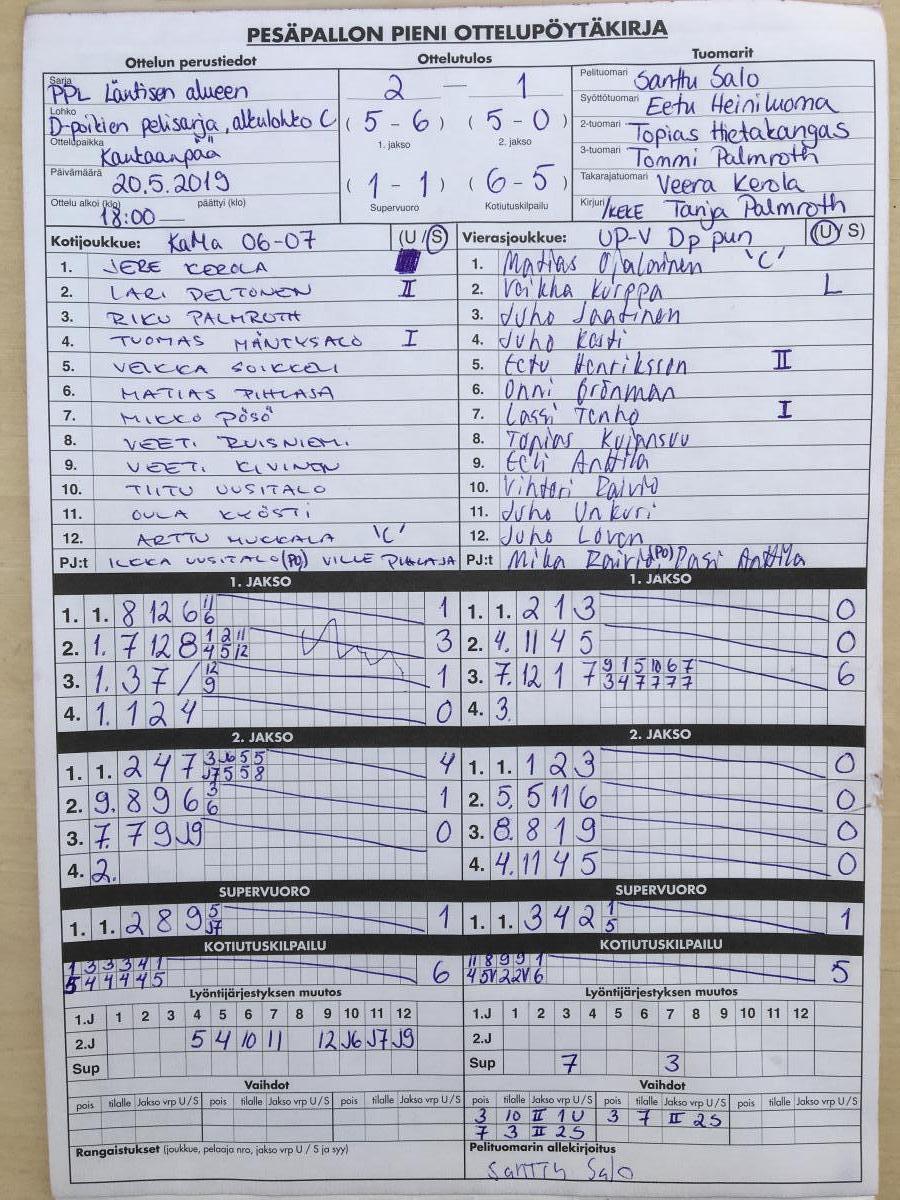 PESÄPALLON PIENI OTTELUPÖYTÄKIRJA
Ottelun perustiedot
Sarja
PPL Läntisen alueen
Lohko
D-poikien pelisarja, alkulohko C
Ottelupaikka
Kankaanpää
Päivämäärä
20.5.2019
Ottelu alkoi (klo) päättyi (klo)
18:00 —
Ottelutulos
2 — 1
( 5 - 6 ) ( 5 - 0 )
1. jakso 2. jakso
( 1 - 1 ) ( 6 - 5 )
Supervuoro Kotiutuskilpailu
Tuomarit
Pelituomari Santtu Salo
Syöttötuomari Eetu Heiniluoma
2-tuomari Topias Hietakangas
3-tuomari Tommi Palmroth
Takarajatuomari Veera Kerola
Kirjuri /KEKE Tanja Palmroth
Kotijoukkue: KaMa 06-07 (U / S)
1. JERE KEROLA
2. LARI PELTONEN II
3. RIKU PALMROTH
4. TUOMAS MÄNTYSALO I
5. VEIKKA SOIKKELI
6. MATIAS PIHLAJA
7. MIKKO PÖSÖ
8. VEETI RUISNIEMI
9. VEETI KIVINEN
10. TIITU UUSITALO
11. OULA KYÖSTI
12. ARTTU MUKKALA 'C'
PJ:t ILKKA UUSITALO (PO) VILLE PIHLAJA
Vierasjoukkue: UP-V Dp pun (U / S)
1. Matias Ojaloinen 'C'
2. Veikka Kurppa L
3. Juho Jaatinen
4. Juho Koisti
5. Eetu Henriksson II
6. Onni Grönman
7. Lassi Tenho I
8. Topias Kujansuu
9. Eeli Anttila
10. Vihtori Raivio
11. Juho Unkuri
12. Juho Loven
PJ:t Mika Raivio (PO) Pasi Anttila
1. JAKSO
1. 1. 8 12 6 11 6 1
2. 1. 7 12 8 1 2 11 4 5 12 3
3. 1. 3 7 / 12 9 1
4. 1. 1 2 4 0
1. JAKSO
1. 1. 2 1 3 0
2. 4. 11 4 5 0
3. 7. 12 1 7 9 1 5 10 6 7 3 4 7 7 7 7 6
4. 3.
2. JAKSO
1. 1. 2 4 7 3 J6 5 5 J7 5 5 8 4
2. 9. 8 9 6 3 6 1
3. 7. 7 9 J9 0
4. 2.
2. JAKSO
1. 1. 1 2 3 0
2. 5. 5 11 6 0
3. 8. 8 1 9 0
4. 4. 11 4 5 0
SUPERVUORO
1. 1. 2 8 9 5 J7 1
SUPERVUORO
1. 1. 3 4 2 1 5 1
KOTIUTUSKILPAILU
1 3 3 3 4 1
5 4 4 4 4 5 6
KOTIUTUSKILPAILU
11 8 9 9 1
5
Lyöntijärjestyksen muutos
1.J 1 2 3 4 5 6 7 8 9 10 11 12
2.J 5 4 10 11 12 J6 J7 J9
Sup
Lyöntijärjestyksen muutos
1.J 1 2 3 4 5 6 7 8 9 10 11 12
2.J
Sup 7 3
Vaihdot
pois tilalle Jakso vrp U / S pois tilalle Jakso vrp U / S pois tilalle Jakso vrp U / S
Vaihdot
pois tilalle Jakso vrp U / S pois tilalle Jakso vrp U / S pois tilalle Jakso vrp U / S
3 10 II 1U 3 7 II 2S
7 3 II 2S
Rangaistukset (joukkue, pelaaja nro, jakso vrp U / S ja syy)
Pelituomarin allekirjoitus
Santtu Salo